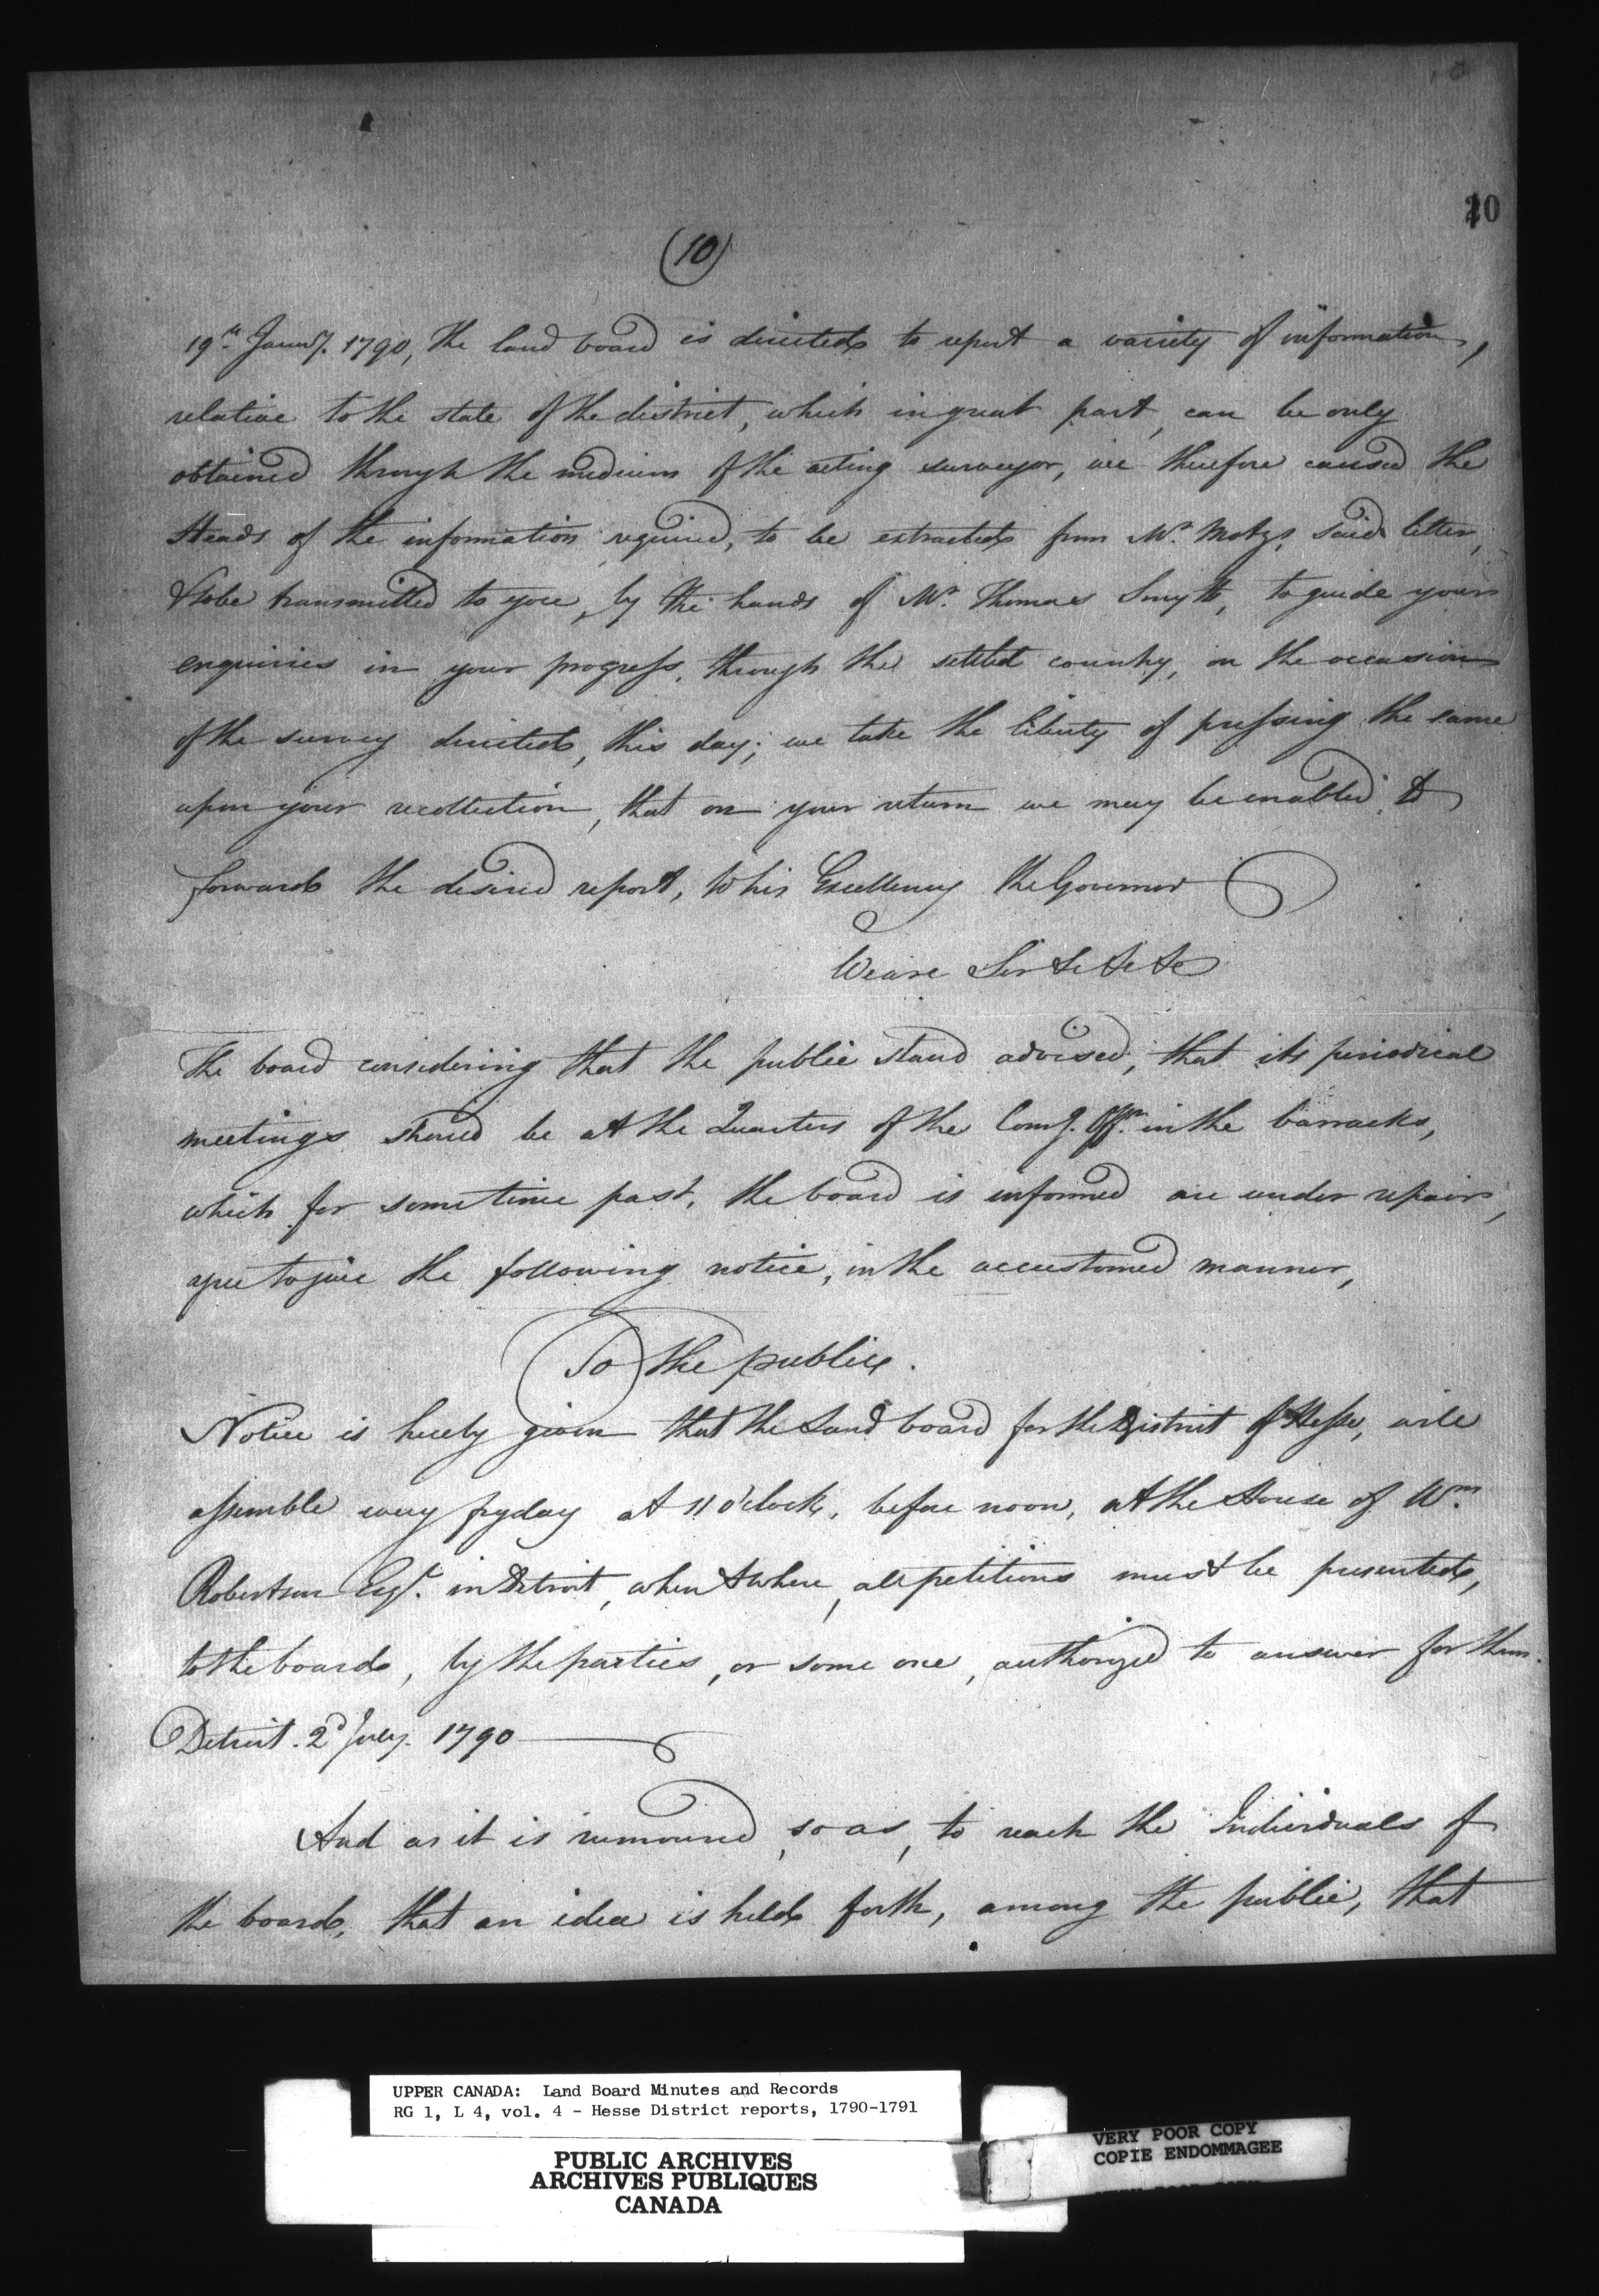 10
(10)
19th Januy. 1790, the land board is directed to report a variety of information,
relative to the state of the district, which in great part, can be only
obtained through the medium of the acting surveyor, we therefore caused the
Heads of the information required, to be extracted from Mr. Motzs, said letter,
& to be transmitted to you, by the hands of Mr. Thomas Smyth, to guide your
enquiries in your progress, through the settled country, on the occasion
of the survey directed, this day; we take the liberty of pressing the same
upon your recollection, that on your return we may be enabled, to
forward the desired report, to his Excellency the Governor
We are Sir &c &c &c
The board considering that the public stand advised, that its periodical
meetings should be at the Quarters of the Comg. Offr. in the barracks,
which for some time past, the board is informed are under repair,
agree to give the following notice, in the accustomed manner,
To the public.
Notice is hereby given that the Land board for the District of Hesse, will
assemble every fryday at 11 o'clock, before noon, at the House of Wm.
Robertson Esqr. in Detroit, when & where, all petitions must be presented,
to the board, by the parties, or some one, authorized to answer for them.
Detroit. 2d July. 1790
And as it is rumoured, so as, to reach the Individuals of
the board, that an idea is held forth, among the public, that
UPPER CANADA: Land Board Minutes and Records
RG 1, L 4, vol. 4 - Hesse District reports, 1790-1791
PUBLIC ARCHIVES
ARCHIVES PUBLIQUES
CANADA
VERY POOR COPY
COPIE ENDOMMAGEE